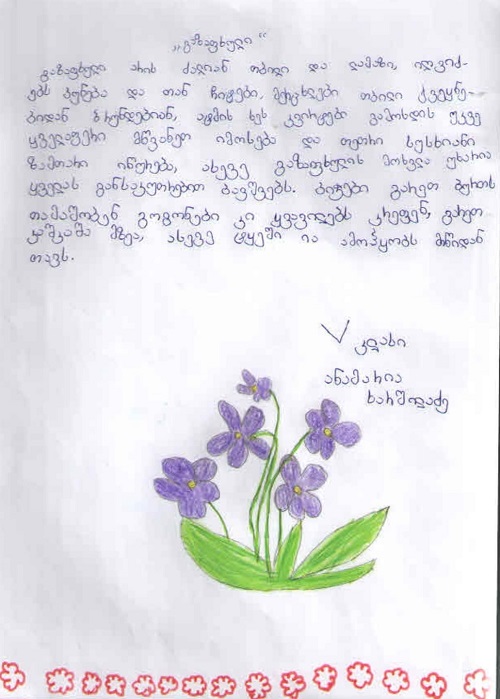 „გაზაფხული“
გაზაფხული არის ძალიან თბილი და ლამაზი, იღვიძ-
ებს ბუნება და თან ჩიტები, მერცხლები თბილი ქვეყნე-
ბიდან ბრუნდებიან, ატმის ხეს კვირტები გამოსდის უკვე
ყველაფერი მწვანეთ იმოსება და თეთრი სუსხიანი
ზამთარი იწურება, ასევე გაზაფხულის მოსვლა უხარია
ყველას განსაკუთრებით ბავშვებს. ბიჭები გარეთ ბურთს
თამაშობენ გოგონები კი ყვავილებს კრეფენ, გარეთ
კაშკაშა მზეა, ასევე ტყეში ია ამოჰყობს მიწიდან
თავს.
V კლასი
ანამარია
ხარშილაძე